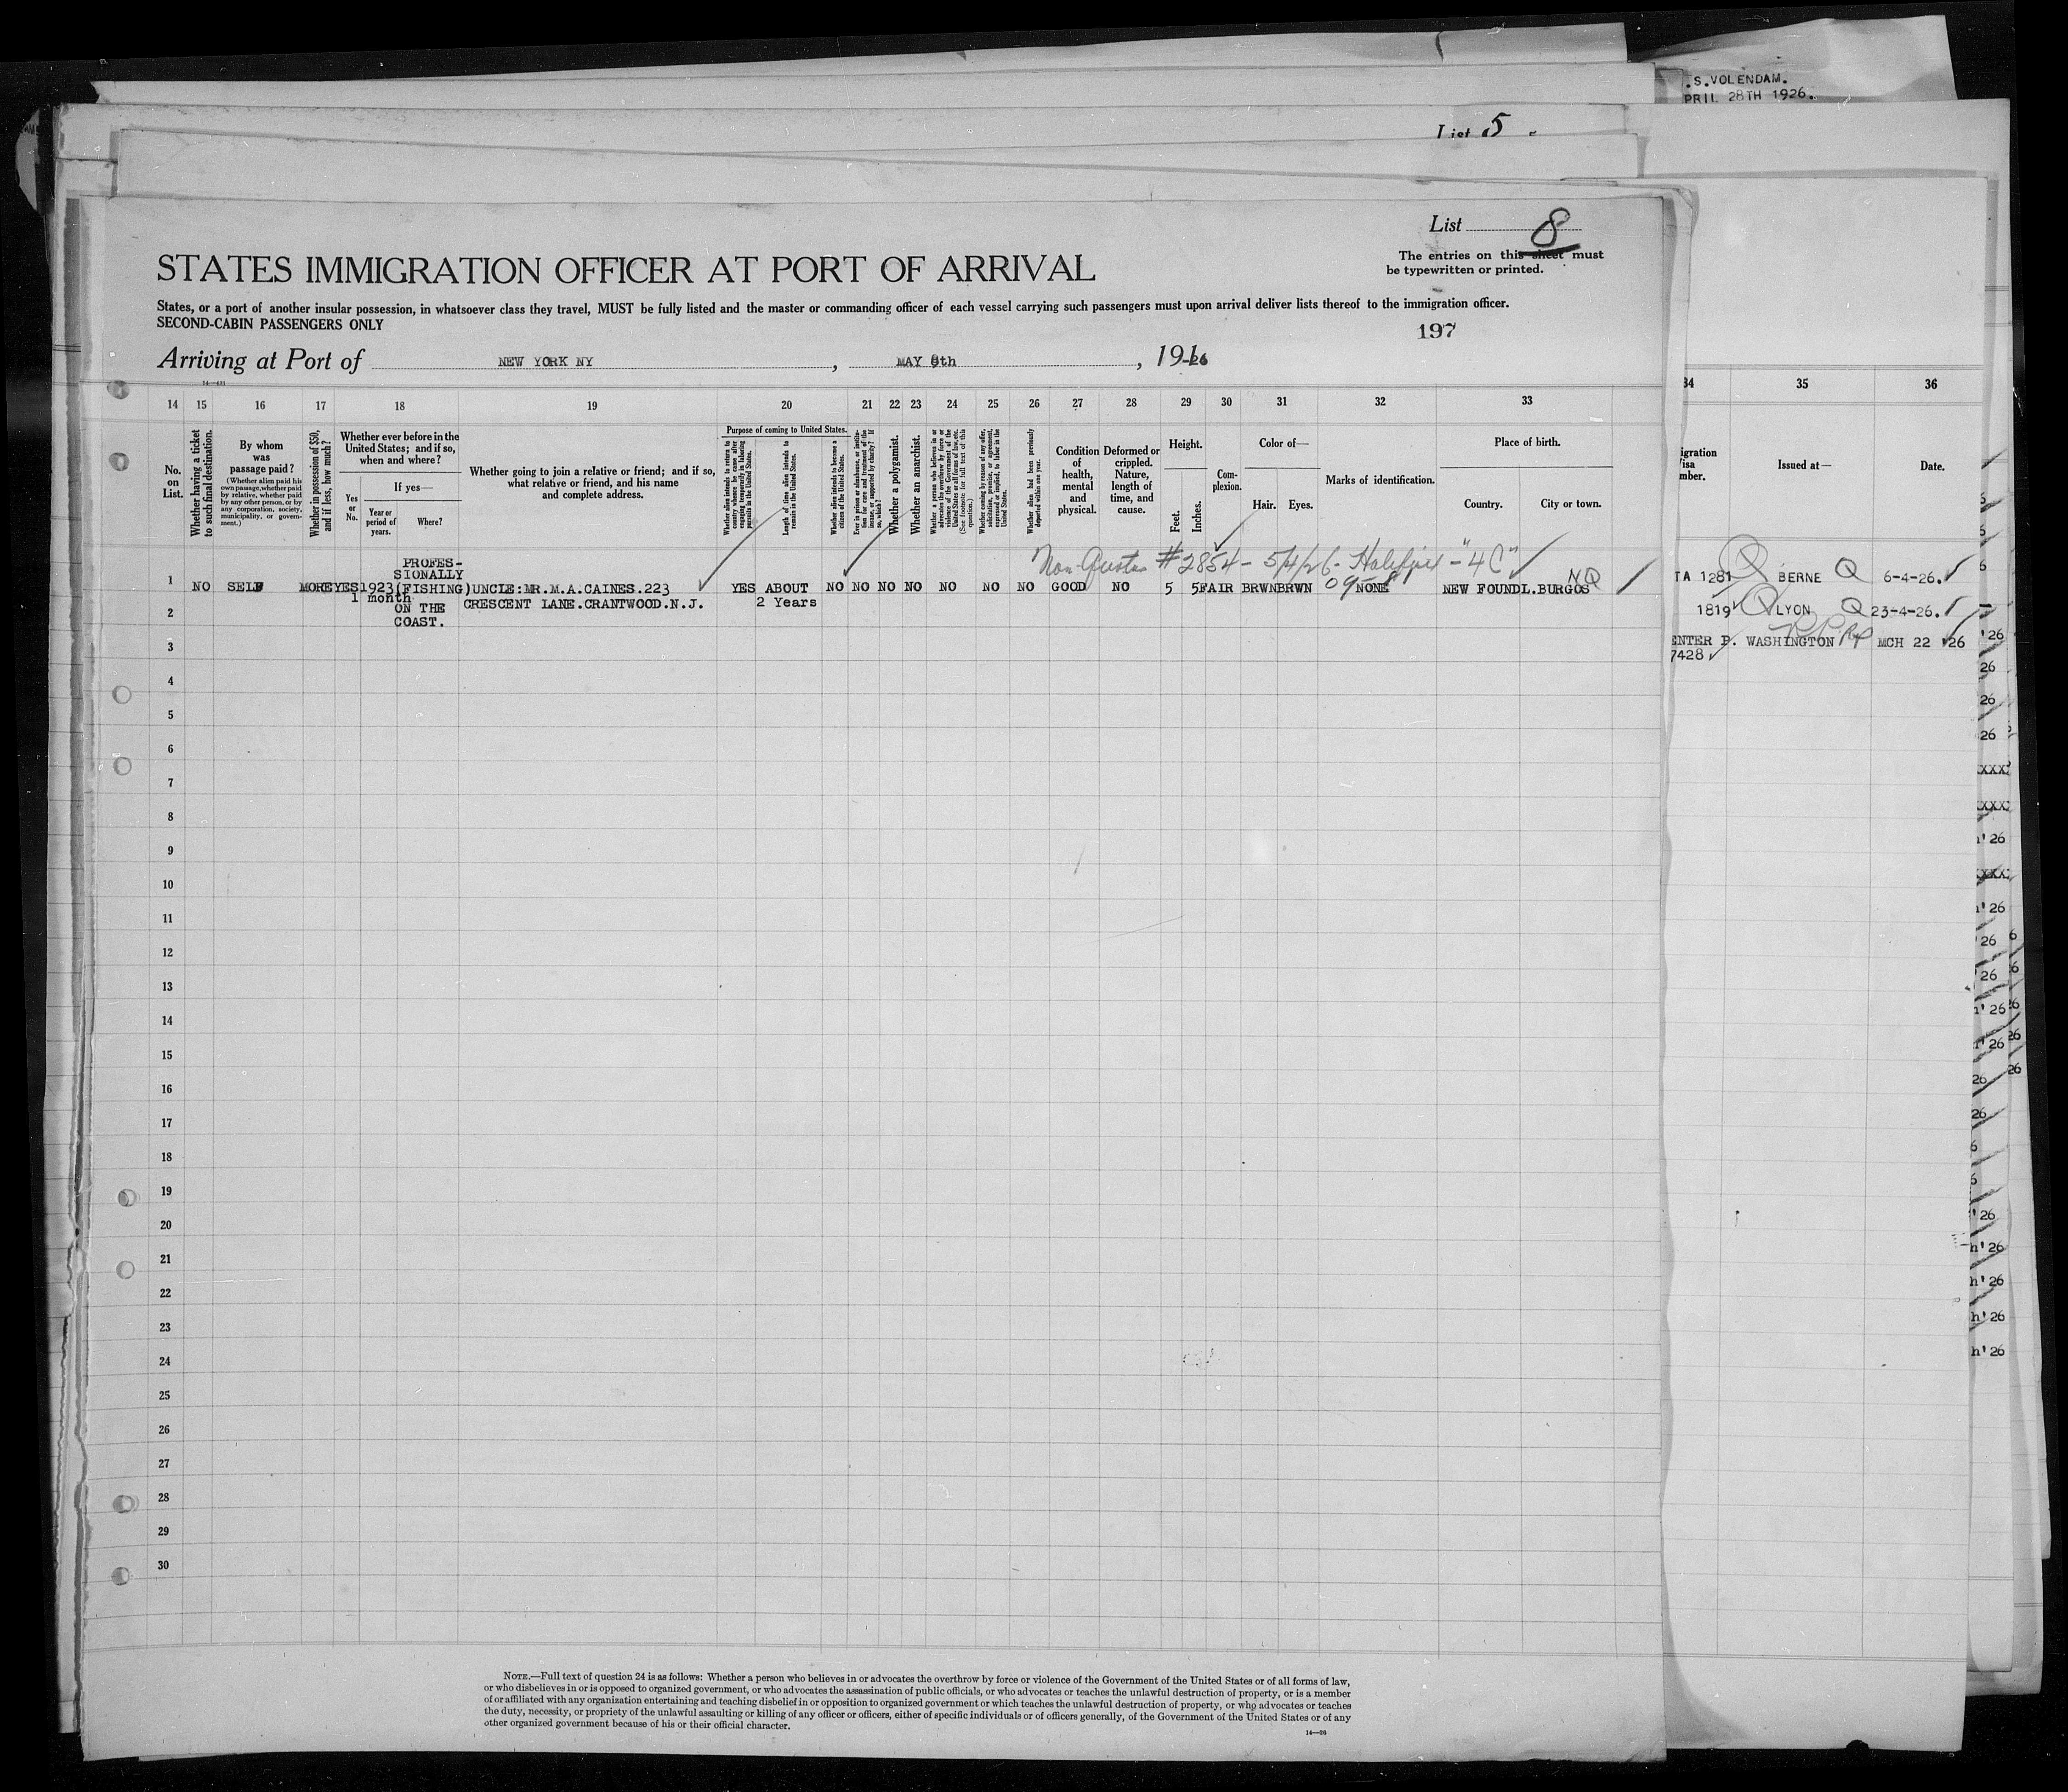 .S.VOLENDAM.
PRIL 28TH 1926.
List 5
List 8
The entries on this sheet must
be typewritten or printed.
STATES IMMIGRATION OFFICER AT PORT OF ARRIVAL
States, or a port of another insular possession, in whatsoever class they travel, MUST be fully listed and the master or commanding officer of each vessel carrying such passengers must upon arrival deliver lists thereof to the immigration officer.
SECOND-CABIN PASSENGERS ONLY
197
Arriving at Port of NEW YORK NY , MAY 8th , 1926
14 15 16 17 18 19 20 21 22 23 24 25 26 27 28 29 30 31 32 33
No. on List.
Whether having a ticket to such final destination.
By whom was passage paid?
(Whether alien paid his own passage, whether paid by relative, whether paid by any other person, or by any corporation, society, municipality, or government.)
Whether in possession of $50, and if less, how much?
Whether ever before in the United States; and if so, when and where?
Yes or No.
If yes—
Year or period of years.
Where?
Whether going to join a relative or friend; and if so, what relative or friend, and his name and complete address.
Purpose of coming to United States.
Whether alien intends to return to country whence he came after engaging temporarily in laboring pursuits in the United States.
Length of time alien intends to remain in the United States.
Whether alien intends to become a citizen of the United States.
Ever in prison or almshouse, or institution for care and treatment of the insane, or supported by charity? If so, which?
Whether a polygamist.
Whether an anarchist.
Whether a person who believes in or advocates the overthrow by force or violence of the Government of the United States or all forms of law, etc. (See footnote for full text of this question.)
Whether coming by reason of any offer, solicitation, promise, or agreement, expressed or implied, to labor in the United States.
Whether alien had been previously deported within one year.
Condition of health, mental and physical.
Deformed or crippled. Nature, length of time, and cause.
Height.
Feet. Inches.
Complexion.
Color of—
Hair. Eyes.
Marks of identification.
Place of birth.
Country. City or town.
Non-Quota #2854 - 5/4/26 - Halifax - "4C"
PROFES-
SIONALLY
1 NO SELF MORE YES 1923 (FISHING) UNCLE:MR.M.A.CAINES.223 YES ABOUT NO NO NO NO NO NO NO GOOD NO 5 5 FAIR BRWN BRWN NONE NEW FOUNDL. BURGOS NQ
1 month ON THE CRESCENT LANE.CRANTWOOD.N.J. 2 Years
COAST.
2
3
4
5
6
7
8
9
10
11
12
13
14
15
16
17
18
19
20
21
22
23
24
25
26
27
28
29
30
34 35 36
igration
isa
mber.
Issued at—
Date.
TA 1281 Q BERNE Q 6-4-26.
1819 Q LYON Q 23-4-26.
ENTER P. WASHINGTON MCH 22 '26
7428
NOTE.—Full text of question 24 is as follows: Whether a person who believes in or advocates the overthrow by force or violence of the Government of the United States or of all forms of law,
or who disbelieves in or is opposed to organized government, or who advocates the assassination of public officials, or who advocates or teaches the unlawful destruction of property, or is a member
of or affiliated with any organization entertaining and teaching disbelief in or opposition to organized government or which teaches the unlawful destruction of property, or who advocates or teaches
the duty, necessity, or propriety of the unlawful assaulting or killing of any officer or officers, either of specific individuals or of officers generally, of the Government of the United States or of any
other organized government because of his or their official character.
14—26